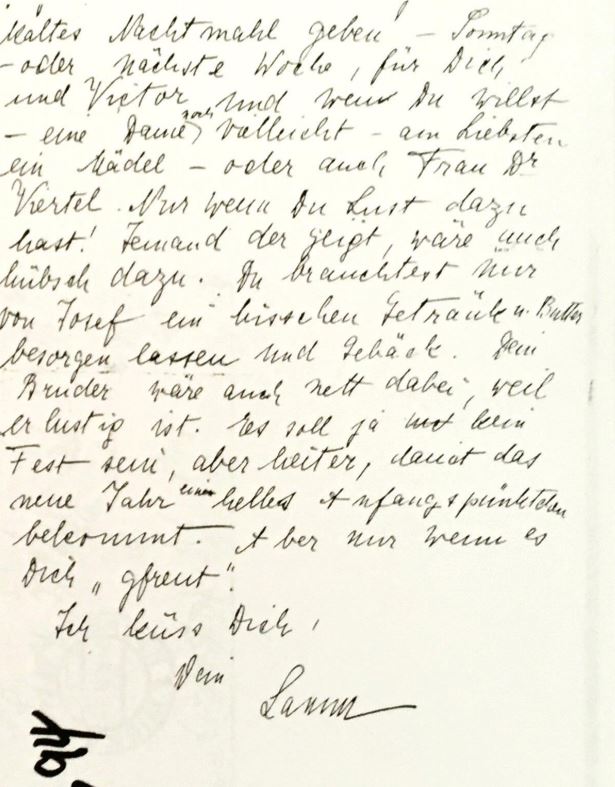 kaltes Nachtmahl geben – Sonntag
– oder nächste Woche, für Dich
und Victor und wenn Du willst
– eine Dame noch vielleicht – am Liebsten
ein Mädel – oder auch Frau Dr
Viertel. Nur wenn Du Lust dazu
hast! Jemand der geigt, wäre auch
hübsch dazu. Du brauchtest nur
von Josef ein bisschen Getränk u. Butter
besorgen lassen und Gebäck. Dein
Bruder wäre auch nett dabei, weil
er lustig ist. Es soll ja kein
Fest sein, aber heiter, damit das
neue Jahr einen helles Anfangspünktchen
bekommt. Aber nur wenn es
Dich „gfreut“.
Ich küss Dich,
Dein